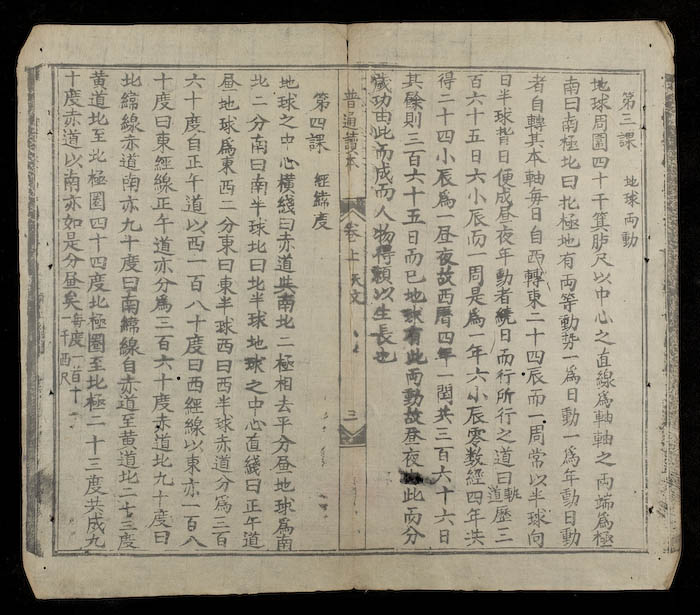 第三課 地球両動
地球周圍四十千箕胋尺以中心之直線爲軸軸之両端爲極
南曰南極北曰北極地有両等動勢一爲日動一爲年動日動
者自轉其本軸每日自西轉東二十四辰而一周常以半球向
日半球背日便成昼夜年動者繞日而行所行之道曰軌道歷三
百六十五日六小辰而一周是爲一年六小辰零数經四年洪
得二十四小辰爲一昼夜故西暦四年一閏共三百六十六日
其餘則三百六十五日而已地球有此両動故昼夜由此而分
歲功由此而成而人物得頼以生長也
普通讀本 卷上 天文 三
第四課 經緯度
地球之中心横綫曰赤道共南北二極相去平分昼地球爲南
北二分南曰南半球北曰北半球地球之中心直綫曰正午道
昼地球爲東西二分東曰東半球西曰西半球赤道分爲三百
六十度自正午道以西一百八十度曰西經線以東亦一百八
十度曰東經線正午道亦分爲三百六十度赤道北九十度曰
北緯線赤道南亦九十度曰南緯線自赤道至黄道北二十三度
黄道北至北極圏四十四度北極圏至北極二十三度共成九
十度赤道以南亦如是分昼矣每度一百十一千西尺